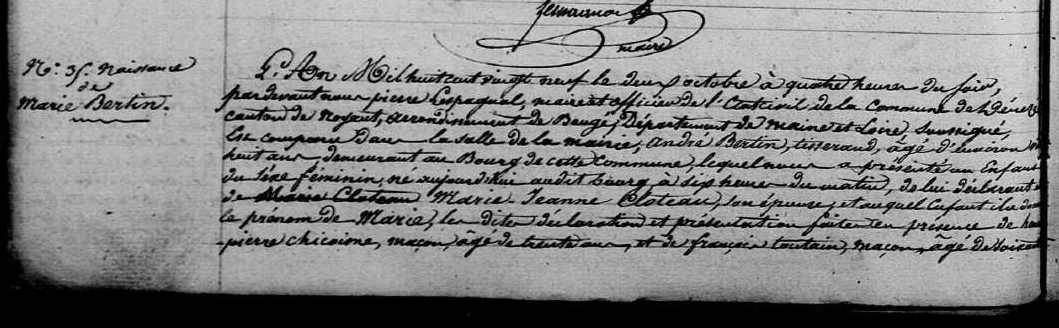 maire
N.° 35. Naissance
de
Marie Bertin.
L'An Mil huit cent vingt neuf le deux octobre à quatre heures du soir,
pardevant nous pierre Lespagnol, maire et officier de l'Etat civil de la Commune de
canton de Noyant, arrondissement de Baugé, Département de maine et Loire, soussigné,
Est comparu dans la salle de la mairie, André Bertin, tisserand, âgé d'environ vingt
huit ans demeurant au Bourg de cette Commune, lequel nous a présenté un Enfant
du sexe féminin, né aujourd'hui audit bourg à six heures du matin, de lui déclarant et
de Marie Cloteau Marie Jeanne Cloteau, son épouse, et auquel Enfant il a donné
le prénom de Marie, les dites déclaration et présentation faites en présence de
pierre chicoisne, maçon, âgé de trente ans, et de françois toutain, maçon, âgé de soixante